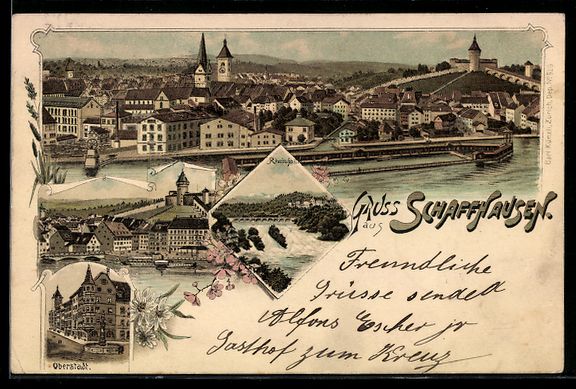 Carl Künzli, Zürich, Dep. No 525
Rheinfall
Gruss
aus
SCHAFFHAUSEN.
Freundliche
Grüsse sendet
Alfons Escher jr
Gasthof zum Kreuz
Oberstadt.